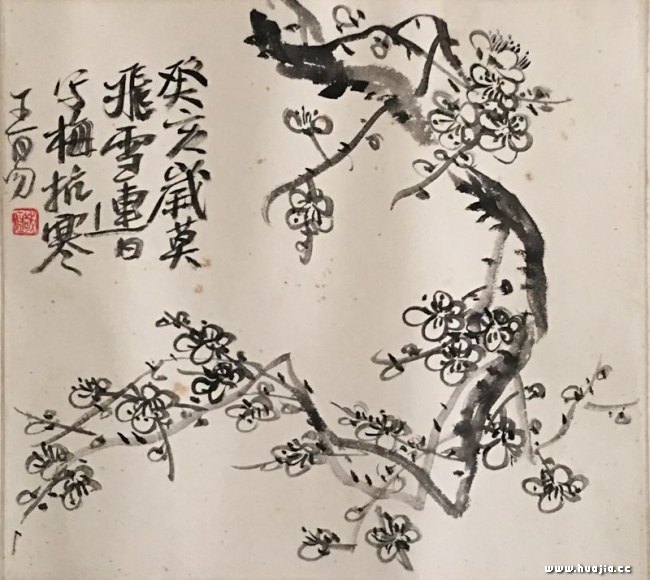 癸亥歲莫
飛雪連日
写梅抗寒
王首男
www.huajia.cc